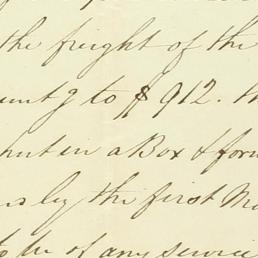 the freight of the
unt g to $912. th
put in a Box & forw
by the first M
to be of any service